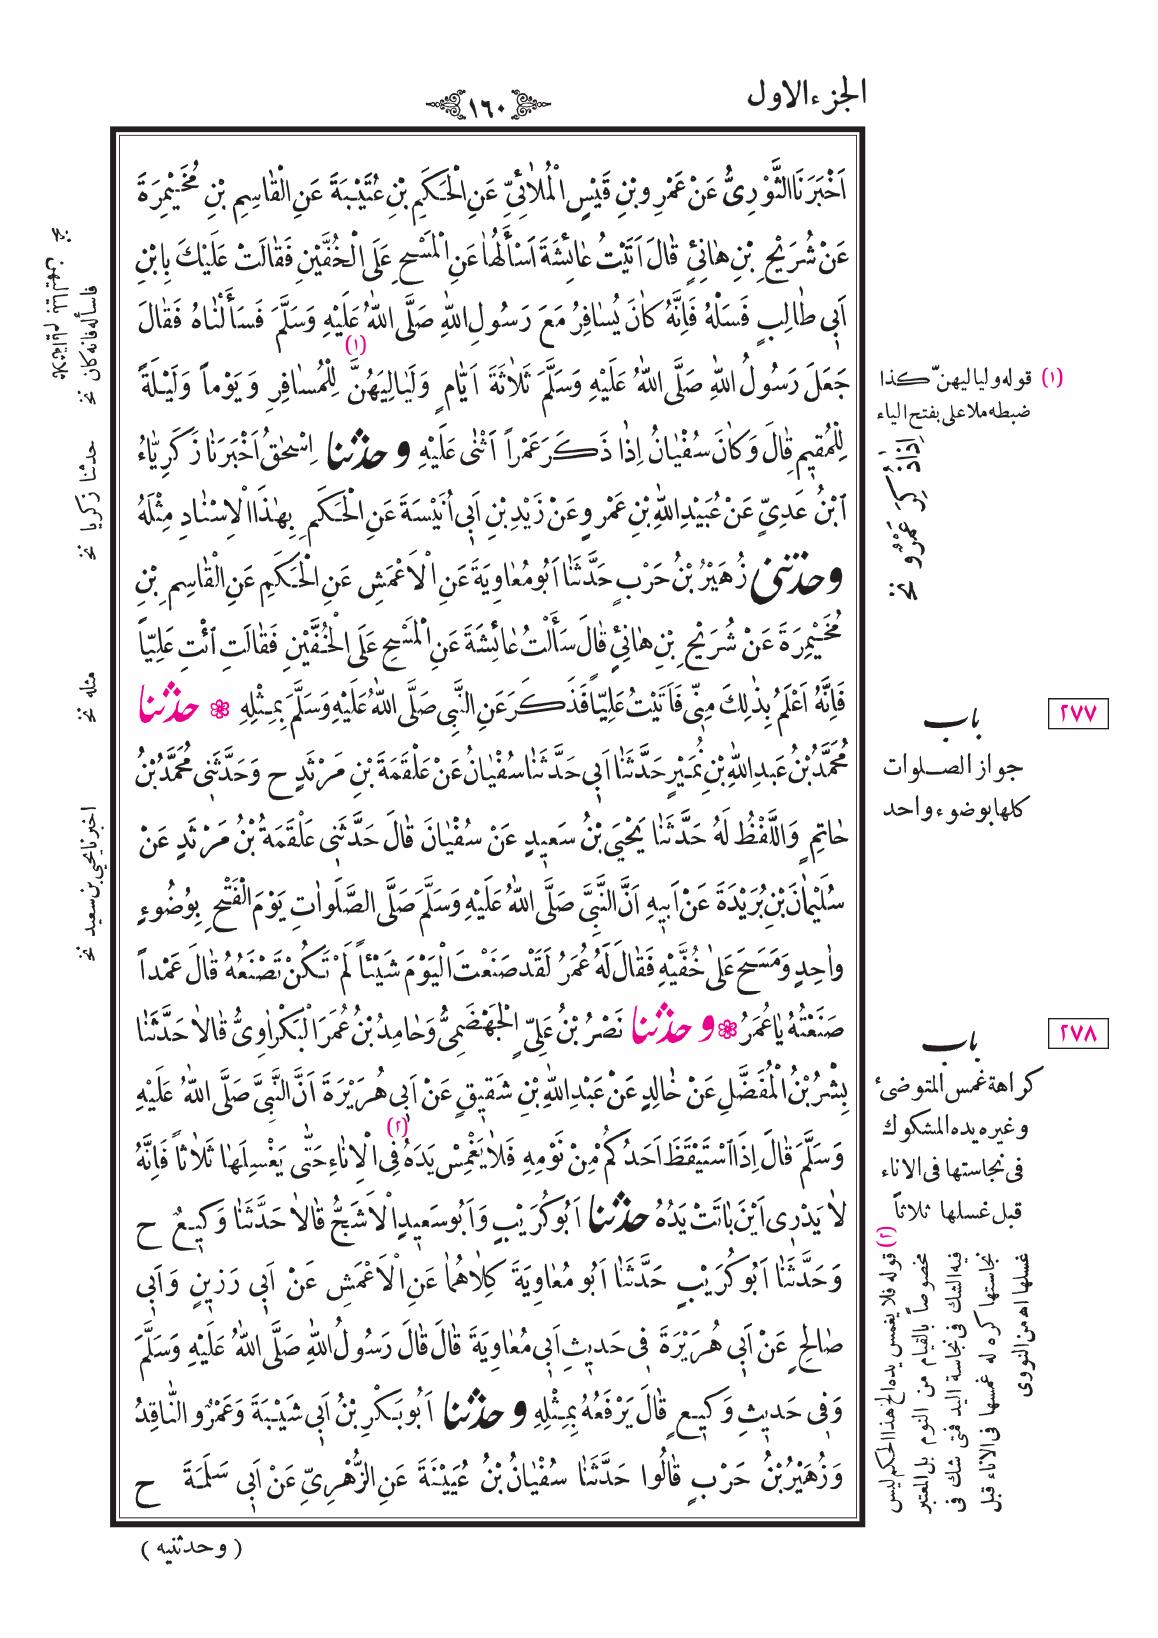 الجزء الاول
١٦٠
اَخْبَرَنَا الثَّوْرِىُّ عَنْ عَمْرِو بْنِ قَيْسٍ الْمُلَائِىِّ عَنِ الْحَكَمِ بْنِ عُتَيْبَةَ عَنِ الْقَاسِمِ بْنِ مُخَيْمِرَةَ
عَنْ شُرَيْحِ بْنِ هَانِئٍ قَالَ اَتَيْتُ عَائِشَةَ اَسْأَلُهَا عَنِ الْمَسْحِ عَلَى الْخُفَّيْنِ فَقَالَتْ عَلَيْكَ بِابْنِ
اَبِى طَالِبٍ فَسَلْهُ فَاِنَّهُ كَانَ يُسَافِرُ مَعَ رَسُولِ اللهِ صَلَّى اللهُ عَلَيْهِ وَسَلَّمَ فَسَأَلْنَاهُ فَقَالَ
جَعَلَ رَسُولُ اللهِ صَلَّى اللهُ عَلَيْهِ وَسَلَّمَ ثَلَاثَةَ اَيَّامٍ وَلَيَالِيَهُنَّ (١) لِلْمُسَافِرِ وَيَوْماً وَلَيْلَةً
لِلْمُقِيمِ قَالَ وَكَانَ سُفْيَانُ اِذَا ذَكَرَ عَمْراً اَثْنَى عَلَيْهِ وحدثنا اِسْحٰقُ اَخْبَرَنَا زَكَرِيَّاءُ
ابْنُ عَدِىٍّ عَنْ عُبَيْدِ اللهِ بْنِ عَمْرٍو عَنْ زَيْدِ بْنِ اَبِى اُنَيْسَةَ عَنِ الْحَكَمِ بِهٰذَا الْاِسْنَادِ مِثْلَهُ
وحدثنى زُهَيْرُ بْنُ حَرْبٍ حَدَّثَنَا اَبُو مُعَاوِيَةَ عَنِ الْاَعْمَشِ عَنِ الْحَكَمِ عَنِ الْقَاسِمِ بْنِ
مُخَيْمِرَةَ عَنْ شُرَيْحِ بْنِ هَانِئٍ قَالَ سَأَلْتُ عَائِشَةَ عَنِ الْمَسْحِ عَلَى الْخُفَّيْنِ فَقَالَتِ ائْتِ عَلِيّاً
فَاِنَّهُ اَعْلَمُ بِذٰلِكَ مِنِّى فَاَتَيْتُ عَلِيّاً فَذَكَرَ عَنِ النَّبِى صَلَّى اللهُ عَلَيْهِ وَسَلَّمَ بِمِثْلِهِ حدثنا
مُحَمَّدُ بْنُ عَبدِ اللهِ بْنِ نُمَيْرٍ حَدَّثَنَا اَبِى حَدَّثَنَا سُفْيَانُ عَنْ عَلْقَمَةَ بْنِ مَرْثَدٍ ح وَحَدَّثَنِى مُحَمَّدُ بْنُ
حَاتِمٍ وَاللَّفْظُ لَهُ حَدَّثَنَا يَحْيَى بْنُ سَعِيدٍ عَنْ سُفْيَانَ قَالَ حَدَّثَنِى عَلْقَمَةُ بْنُ مَرْثَدٍ عَنْ
سُلَيْمَانَ بْنِ بُرَيْدَةَ عَنْ اَبِيهِ اَنَّ النَّبِىَّ صَلَّى اللهُ عَلَيْهِ وَسَلَّمَ صَلَّى الصَّلَوَاتِ يَوْمَ الْفَتْحِ بِوُضُوءٍ
وَاحِدٍ وَمَسَحَ عَلىٰ خُفَّيْهِ فَقَالَ لَهُ عُمَرُ لَقَدْ صَنَعْتَ الْيَوْمَ شَيْئاً لَمْ تَكُنْ تَصْنَعُهُ قَالَ عَمْداً
صَنَعْتُهُ يَا عُمَرُ وحدثنا نَصْرُ بْنُ عَلِىٍّ الْجَهْضَمِىُّ وَحَامِدُ بْنُ عُمَرَ الْبَكْرَاوِىُّ قَالَا حَدَّثَنَا
بِشْرُ بْنُ الْمُفَضَّلِ عَنْ خَالِدٍ عَنْ عَبْدِ اللهِ بْنِ شَقِيقٍ عَنْ اَبِى هُرَيْرَةَ اَنَّ النَّبِىَّ صَلَّى اللهُ عَلَيْهِ
وَسَلَّمَ قَالَ اِذَا اسْتَيْقَظَ اَحَدُكُمْ مِنْ نَوْمِهِ فَلَا يَغْمِسْ يَدَهُ (٢) فِى الْاِنَاءِ حَتّٰى يَغْسِلَهَا ثَلَاثاً فَاِنَّهُ
لَا يَدْرِى اَيْنَ بَاتَتْ يَدُهُ حدثنا اَبُو كُرَيْبٍ وَاَبُو سَعِيدٍ الْاَشَجُّ قَالَا حَدَّثَنَا وَكِيعٌ ح
وَحَدَّثَنَا اَبُو كُرَيْبٍ حَدَّثَنَا اَبُو مُعَاوِيَةَ كِلَاهُمَا عَنِ الْاَعْمَشِ عَنْ اَبِى رَزِينٍ وَاَبِى
صَالِحٍ عَنْ اَبِى هُرَيْرَةَ فِى حَدِيثِ اَبِى مُعَاوِيَةَ قَالَ قَالَ رَسُولُ اللهِ صَلَّى اللهُ عَلَيْهِ وَسَلَّمَ
وَفِى حَدِيثِ وَكِيعٍ قَالَ يَرْفَعُهُ بِمِثْلِهِ وحدثنا اَبُو بَكْرِ بْنُ اَبِى شَيْبَةَ وَعَمْرٌو النَّاقِدُ
وَزُهَيْرُ بْنُ حَرْبٍ قَالُوا حَدَّثَنَا سُفْيَانُ بْنُ عُيَيْنَةَ عَنِ الزُّهْرِىِّ عَنْ اَبِى سَلَمَةَ ح
( وحدثنيه )
(١) قوله ولياليهنّ كذا
ضبطه ملا على بفتح الياء
اِذَا ذُكِرَ عَمْرٌو نخ
٢٧٧
باب
جواز الصلوات
كلها بوضوء واحد
٢٧٨
باب
كراهة غمس المتوضىء
وغيره يده المشكوك
فى نجاستها فى الاناء
قبل غسلها ثلاثاً
(٢) قوله فلا يغمس يده الخ هذا الحكم ليس
مخصوصاً بالقيام من النوم بل المعتبر
فيه الشك فى نجاسة اليد فمتى شك فى
نجاستها كره له غمسها فى الاناء قبل
غسلها اه من النووى
فاسأله فانه كان نخ
حدثنا زكريا نخ
مثله نخ
اخبرنا يحيى بن سعيد نخ